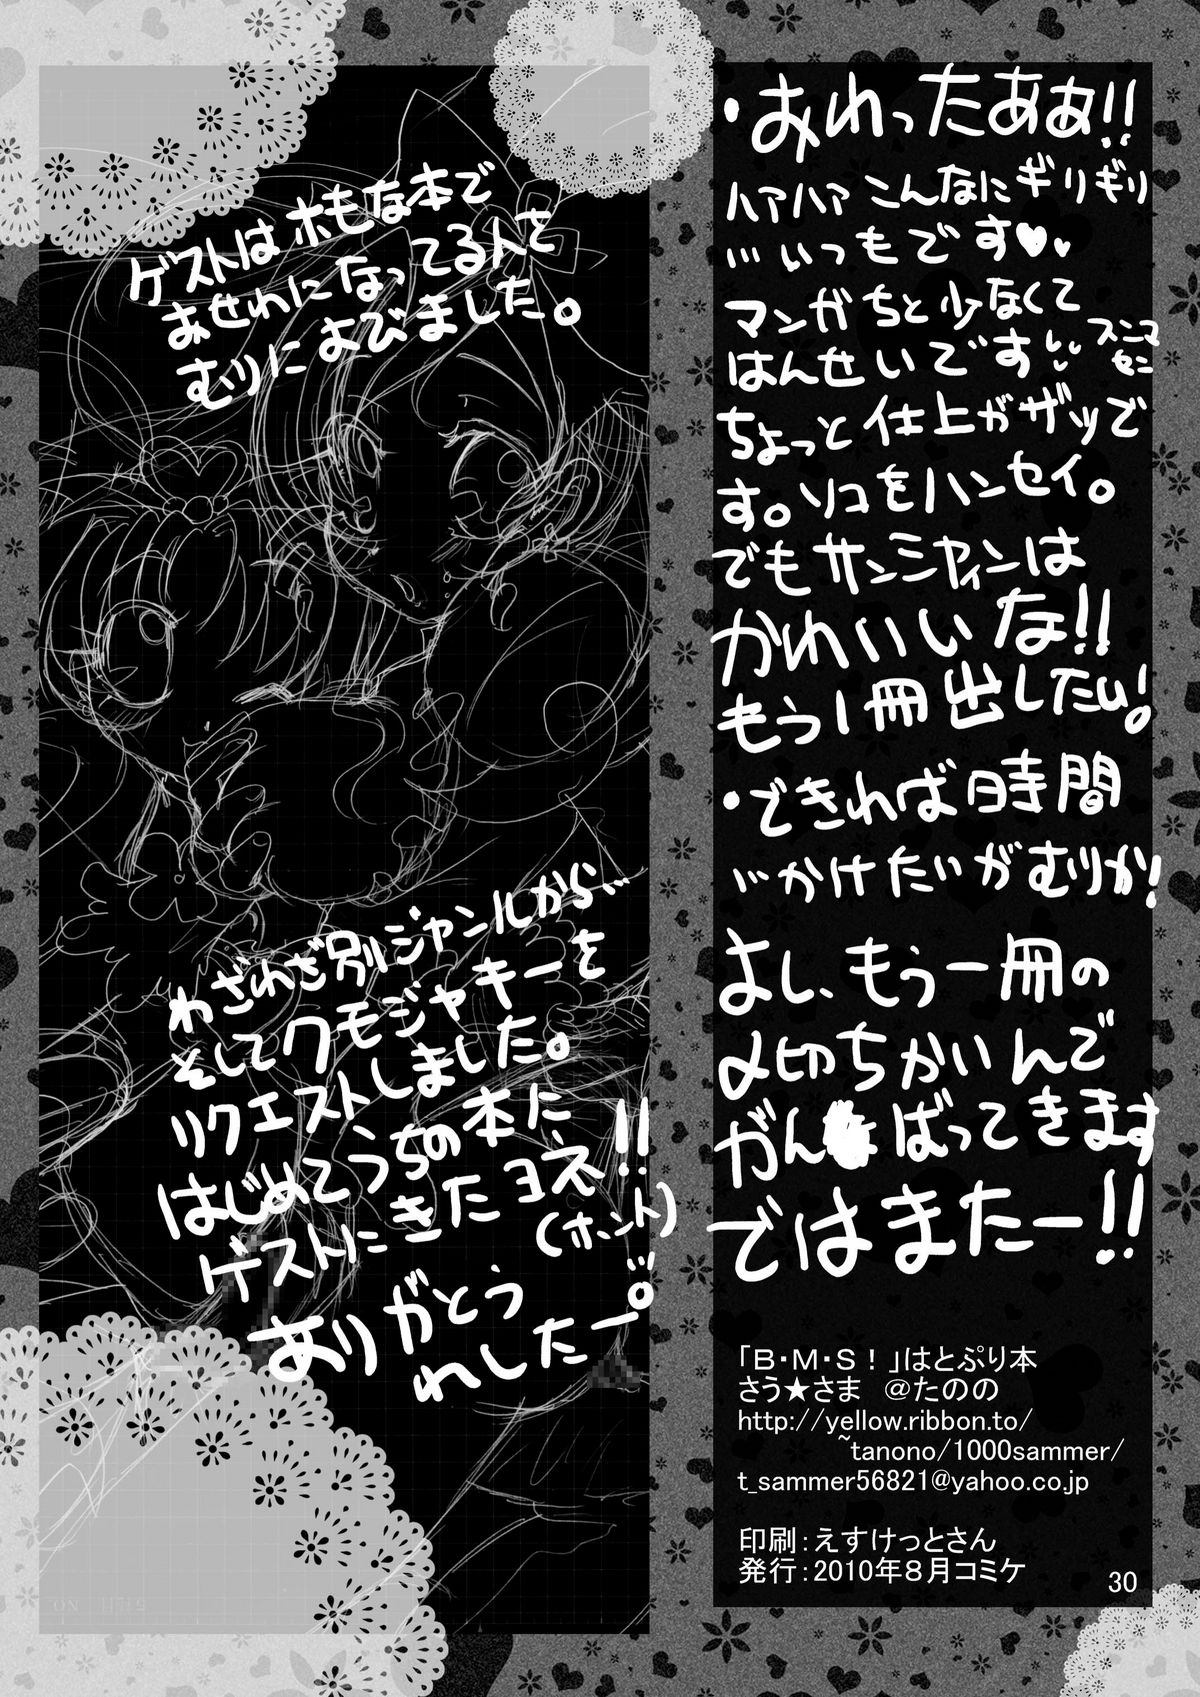 ・おわったああ!!
ハアハア こんなにギリギリ
…いつもです♥♥
マンガちと少なくて
はんせいです
スニマ
セン
ちょっと仕上がザッで
す。ソコをハンセイ。
でもサンシャインは
かわいいな!!
もう1冊出したい!
・できれば時間
…かけたいがむりか!
よし、もう一冊の
〆切ちかいんで
がんばってきます
ではまたー!!
「B・M・S!」はとぷり本
さう★さま @たのの
http://yellow.ribbon.to/
~tanono/1000sammer/
t_sammer56821@yahoo.co.jp
印刷:えすけっとさん
発行:2010年8月コミケ
30
ゲストはホモな本で
おせわになってる人を
むりによびました。
わざわざ別ジャンルから…
そしてクモジャキーを
リクエストしました。
はじめてうちの本に
ゲストにきたヨネ!!
(ホント)
ありがとう
…れしたー。